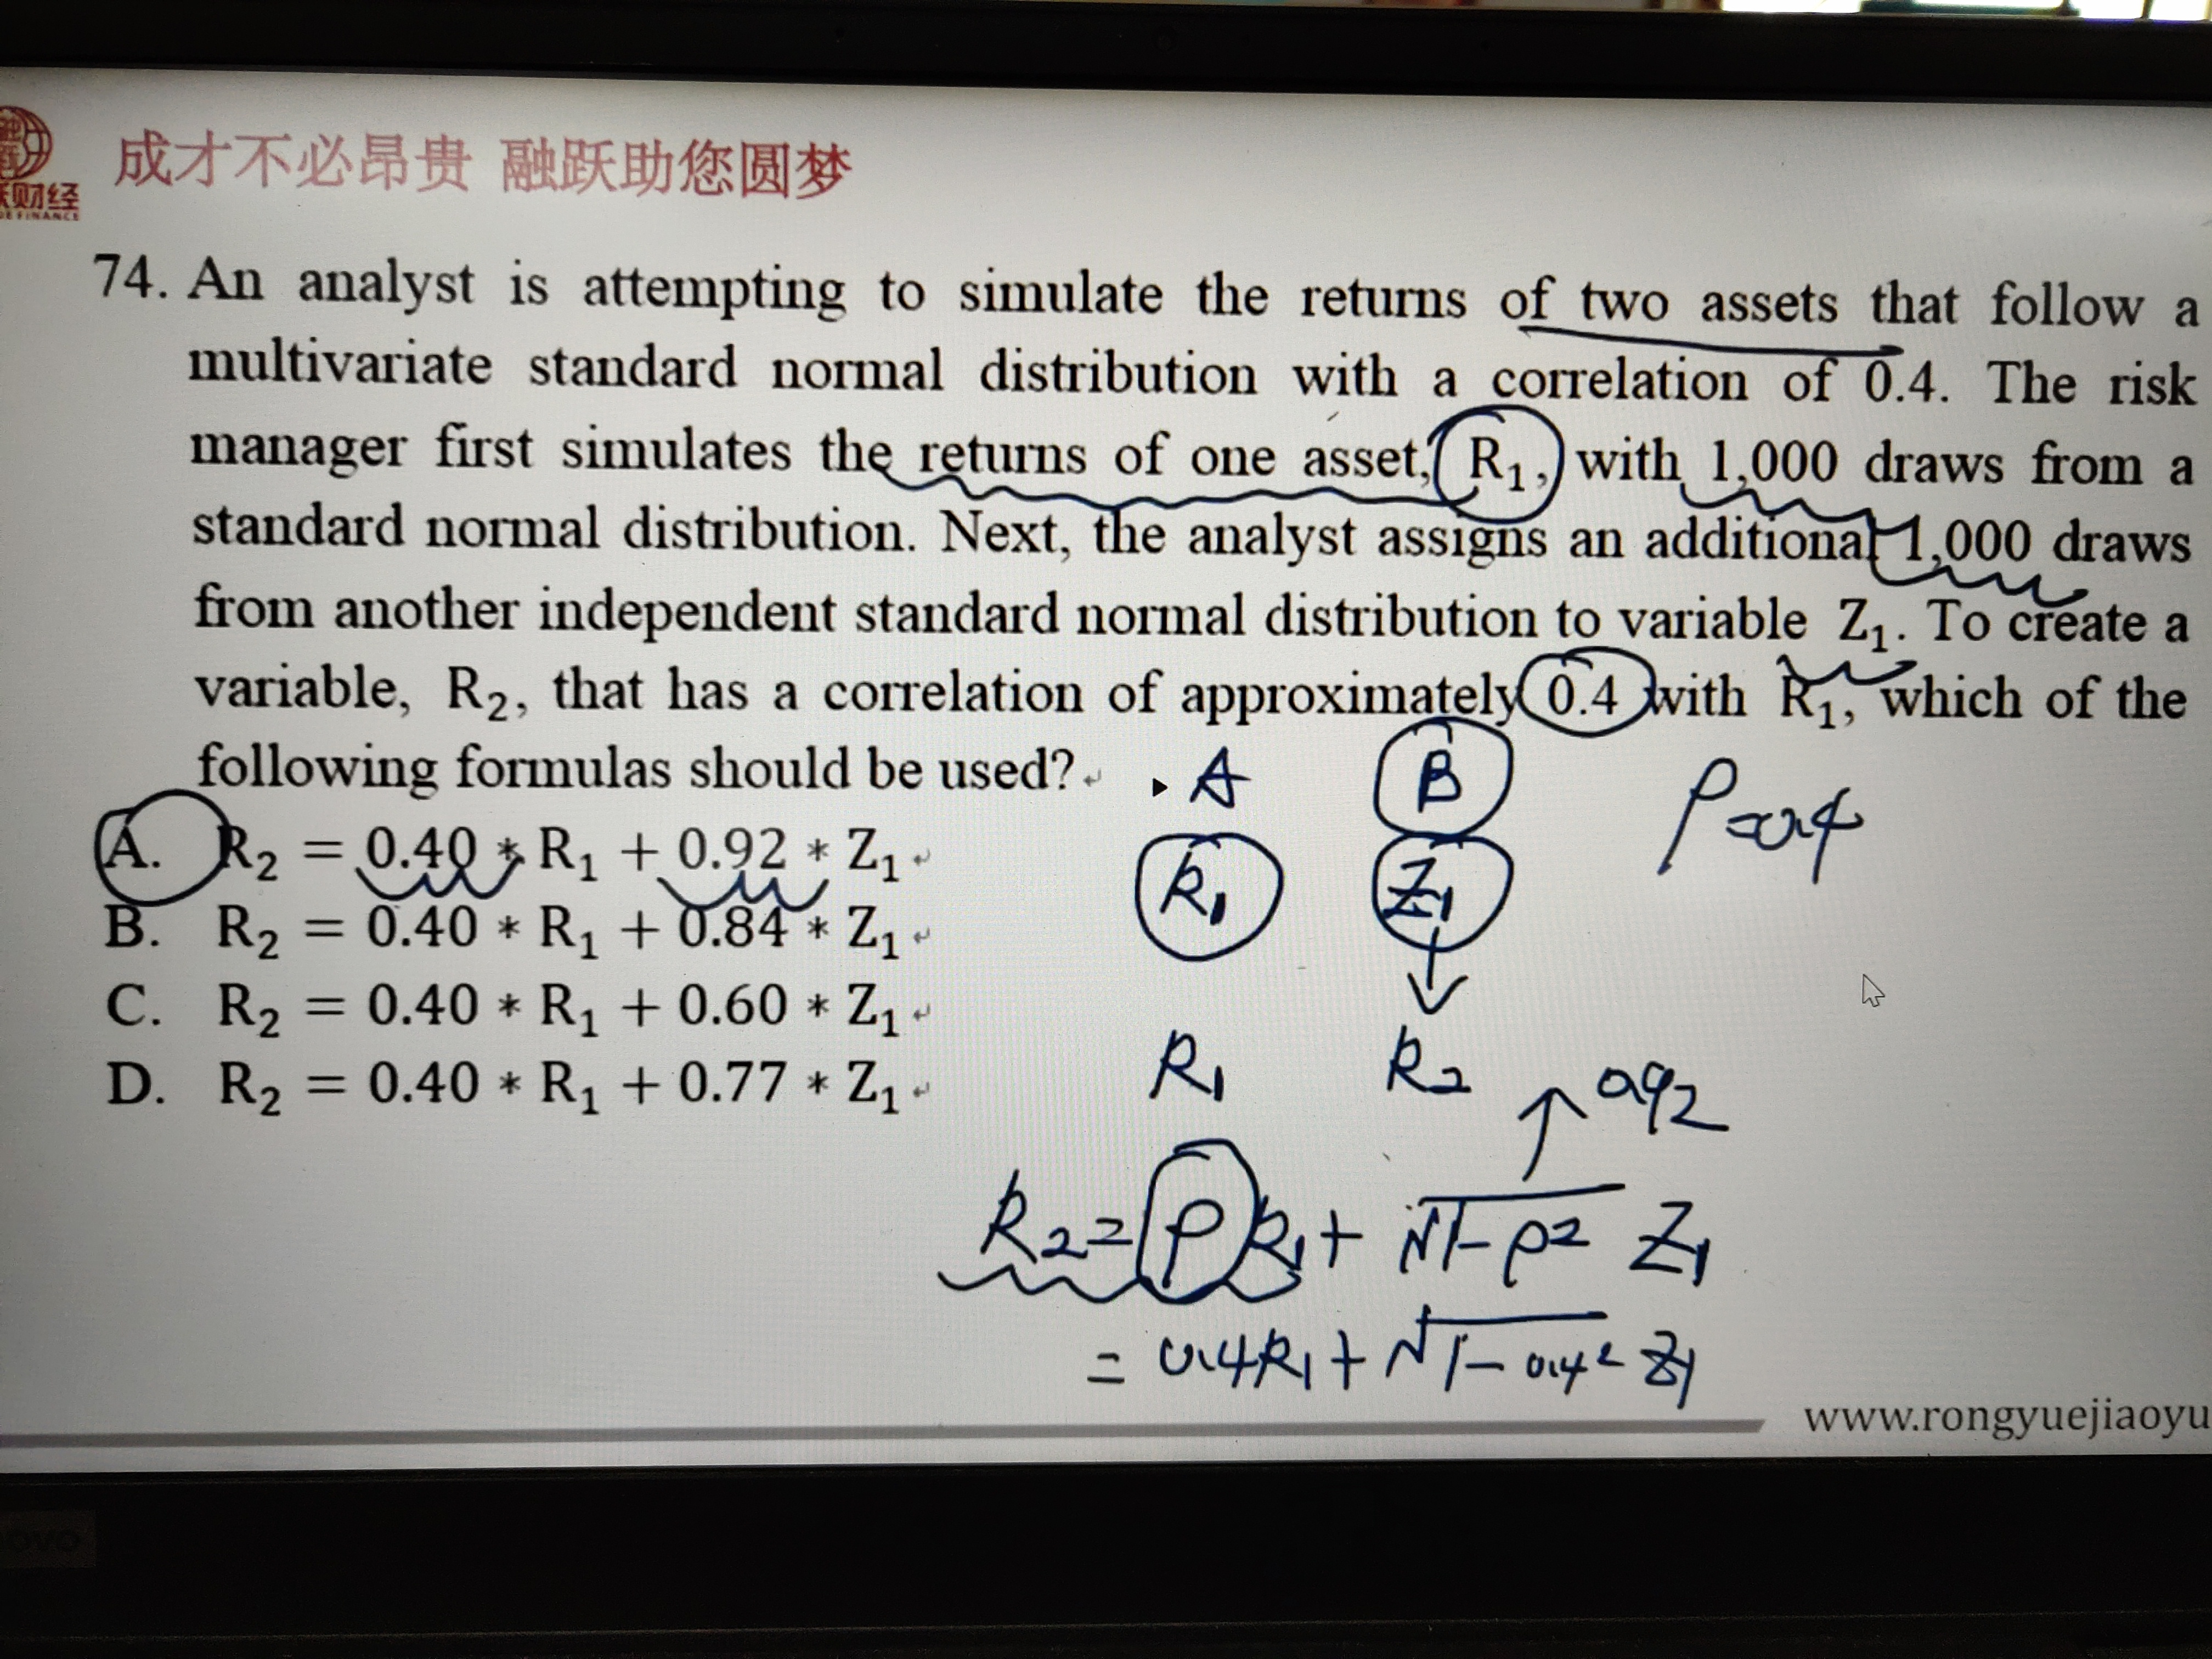 成才不必昂贵 融跃助您圆梦
财经
DE FINANCE
74. An analyst is attempting to simulate the returns of two assets that follow a
multivariate standard normal distribution with a correlation of 0.4. The risk
manager first simulates the returns of one asset, R₁, with 1,000 draws from a
standard normal distribution. Next, the analyst assigns an additional 1,000 draws
from another independent standard normal distribution to variable Z₁. To create a
variable, R₂, that has a correlation of approximately 0.4 with R₁, which of the
following formulas should be used?
A. R₂ = 0.40 * R₁ + 0.92 * Z₁
B. R₂ = 0.40 * R₁ + 0.84 * Z₁
C. R₂ = 0.40 * R₁ + 0.60 * Z₁
D. R₂ = 0.40 * R₁ + 0.77 * Z₁
A B ρ=0.4
R₁ Z₁
R₁ R₂ 0.92
R₂=ρR₁+√1-ρ² Z₁
= 0.4R₁+√1-0.4² Z₁
www.rongyuejiaoyu